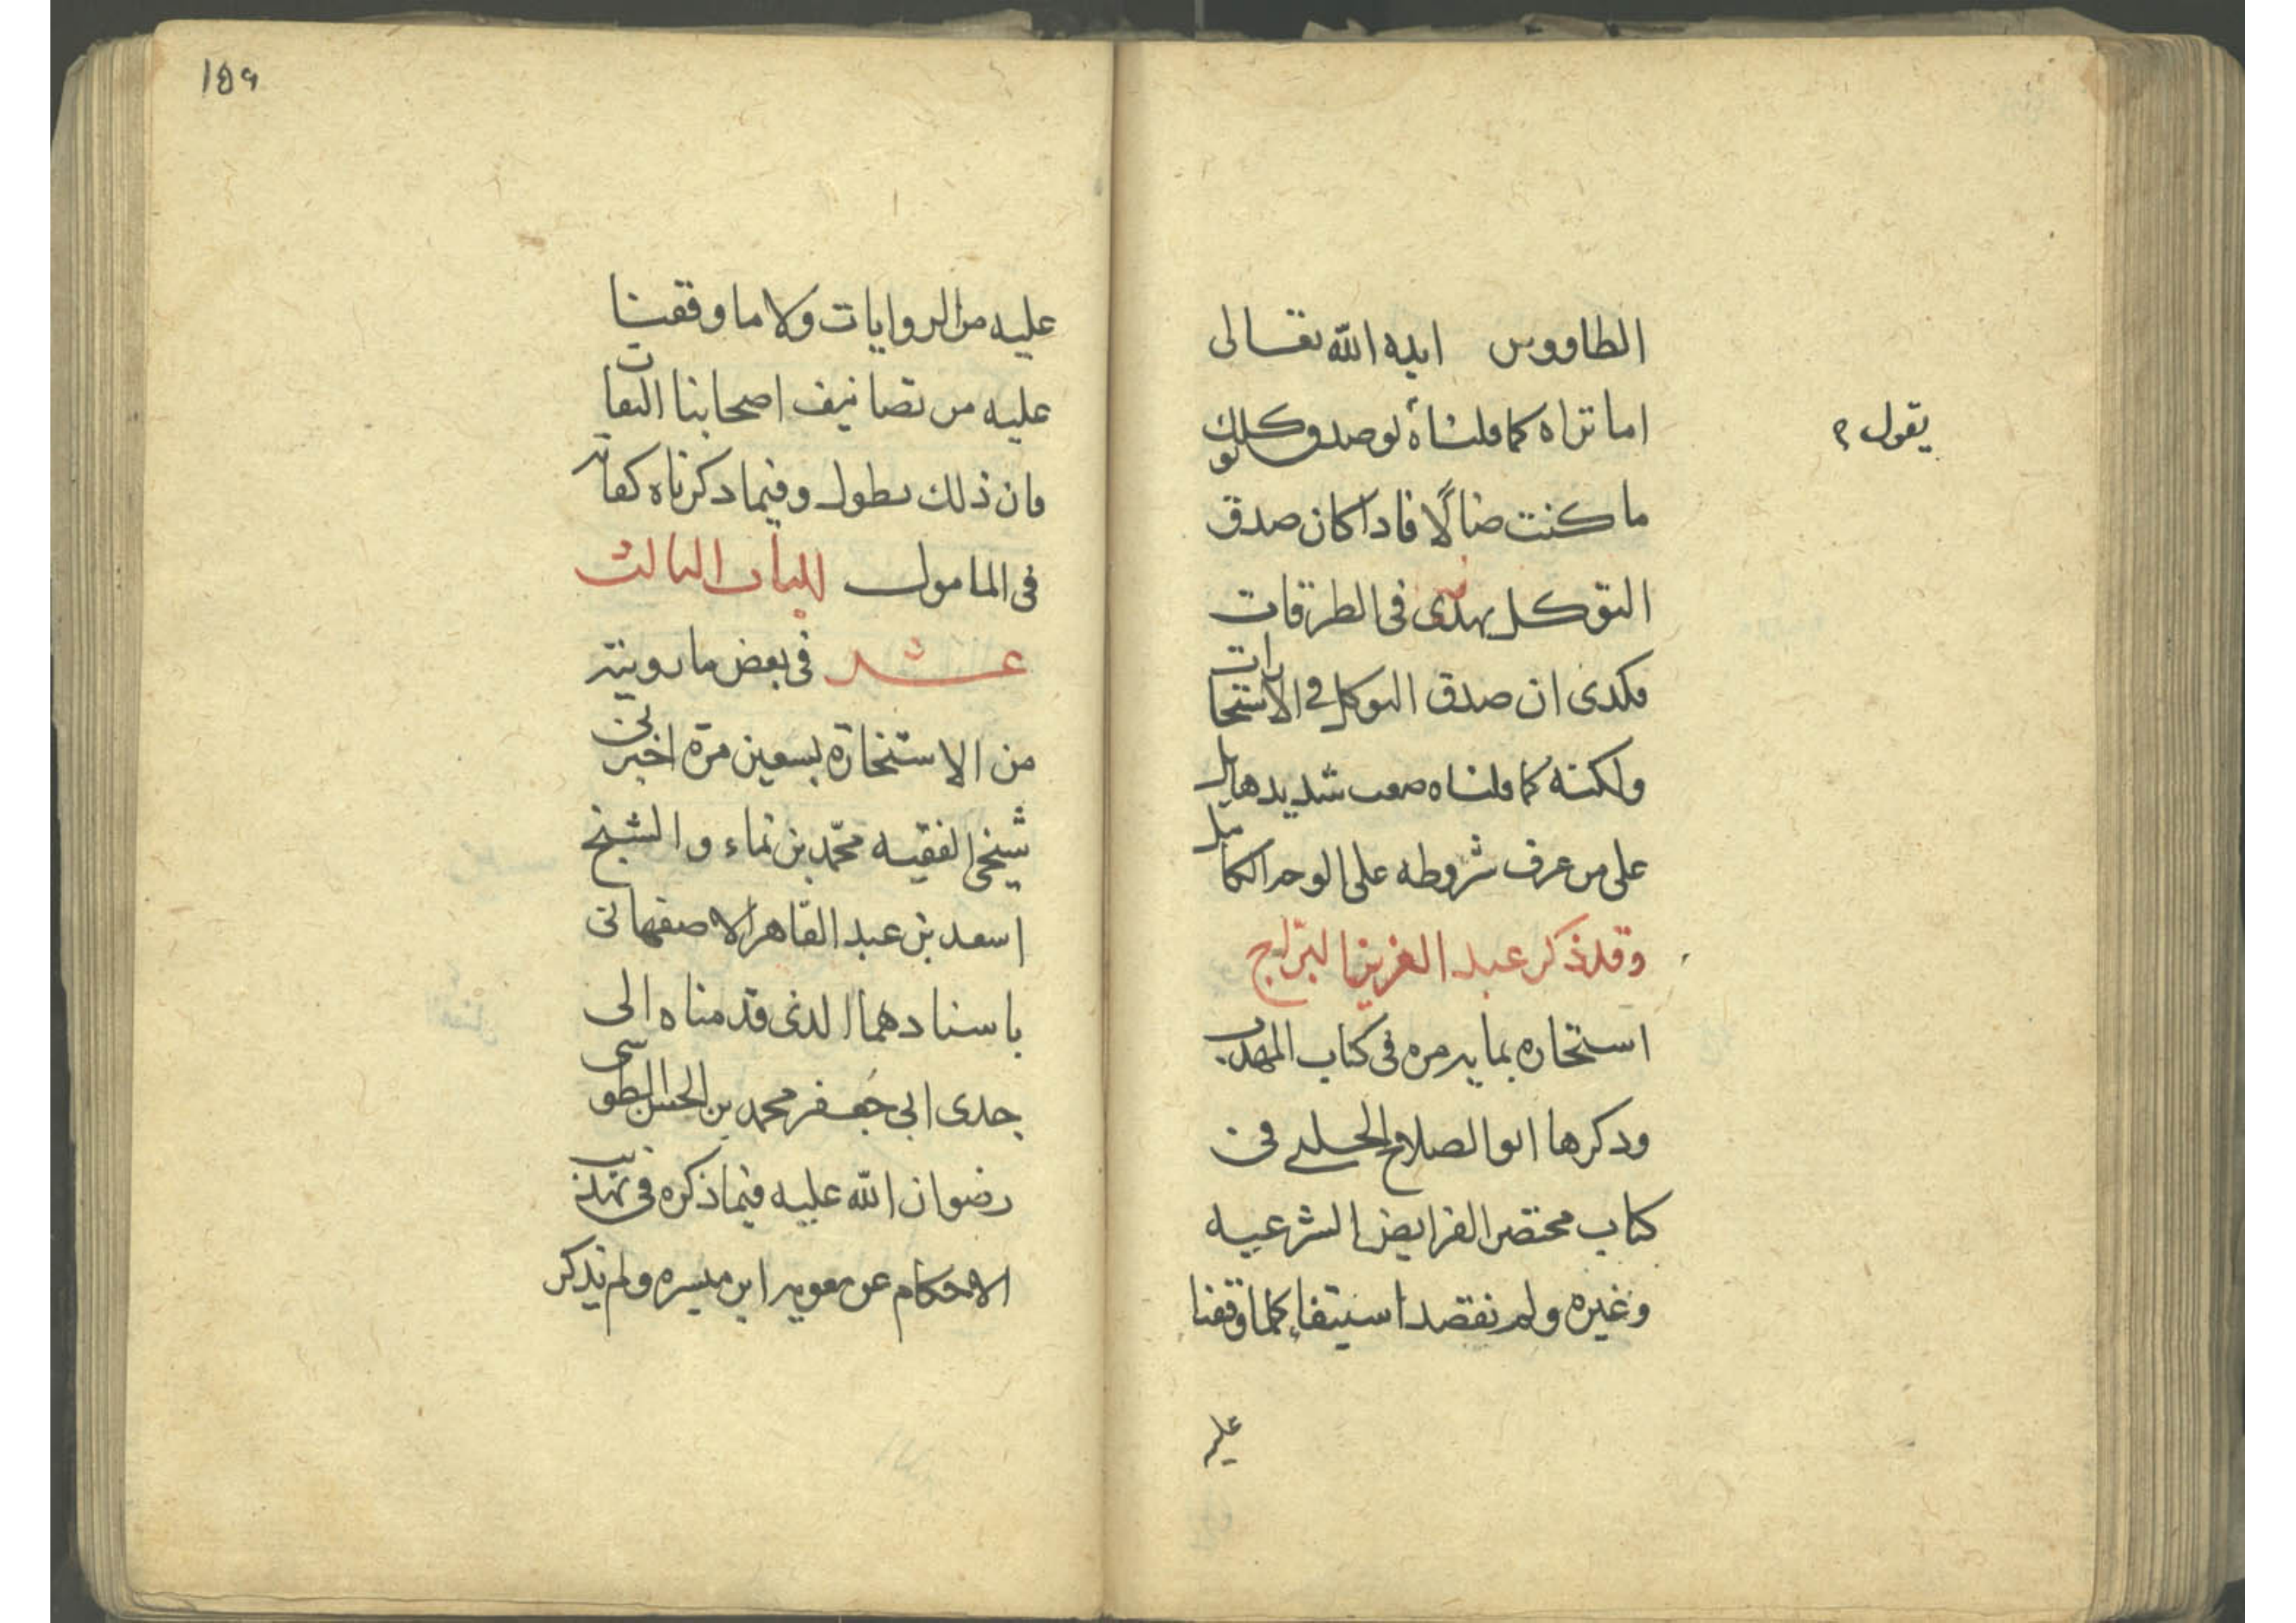 الطاووس ايده الله تعالى
اما تراه كما قلناه لو صدق توكلك
يقول
ما كنت ضالًا فاذا كان صدق
التوكل يهدى فى الطرقات
فكذى ان صدق التوكل فى الاستخارات
ولكنه كما قلناه صعب شديد هايل
على من عرف شروطه على الوجه الكامل
وقد ذكر عبد العزيز البرّاج
استخاره بمايه مره فى كتاب المهذب
وذكرها ابو الصلاح الحلبى فى
كتاب مختصر الفرايض الشرعيه
وغيره ولم نقصد استيفاء كلما وقفنا
عليه
١٥٩
عليه من الروايات ولا ما وقفنا
عليه من تصانيف اصحابنا الثقات
فان ذلك يطول وفيما ذكرناه كفايه
فى المامول الباب الثالث
عشر فى بعض ما رويته
من الاستخارة بسبعين مرة اخبرنى
شيخى الفقيه محمّد بن نماء والشيخ
اسعد بن عبد القاهر الاصفهانى
باسنادهما الذى قدمناه الى
جدى ابى جعفر محمد بن الحسن الطوسى
رضوان الله عليه فيما ذكره فى تهذيب
الاحكام عن معويه ابن ميسره ولم يذكر